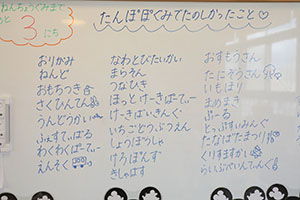 ねんちょうぐみまで
あと 3 にち
たんぽぽぐみでたのしかったこと♡
おりがみ
ねんど
おもちつき
さくひんてん
うんどうかい
ふぇすてぃばる
わくわくぱーてぃー
えんそく
なわとびたいかい
まらそん
つなひき
ほっとけーきぱーてぃー
けーきばいきんぐ
いちごとうぶつえん
しょうぼうしゃ
けろぽんず
きしゃぽす
おすもうさん
たにぞうさん
いもほり
まめまき
ぷーる
とっぷすいみんぐ
たなばたまつり
くりすますかい